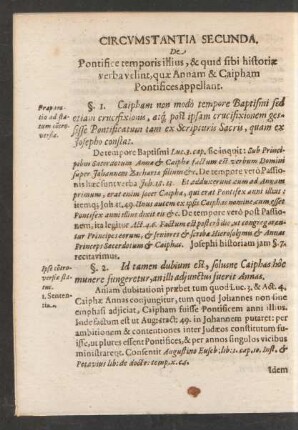 CIRCVMSTANTIA SECUNDA.
De
Pontifice temporis illius, & quid sibi historiæ
verba velint, quæ Annam & Caipham
Pontifices appellant.
Præpara-
tio ad sta-
tum côtro-
versiæ.
§. 1. Caipham non modò tempore Baptismi sed
etiam crucifixionis, atq; post ipsam crucifixionem ges-
sisse Pontificatum tam ex Scripturis Sacris, quam ex
Josepho constat.
De tempore Baptismi Luc. 3. cap. sic inquit: Sub Princi-
pibus Sacerdotum Anna & Caipha factum est verbum Domini
super Johannem Zachariæ filium &c. De tempore verò Passio-
nis hæc sunt verba Joh. 18. 13. Et adduxerunt eum ad Annam
primum, erat enim socer Caiphæ, qui erat Pontifex anni illius;
item q; Joh. 11. 49. Unus autem ex ipsis Caiphas nomine, cum esset
Pontifex anni illius dixit eis &c. De tempore verò post Passio-
nem, ita legitur Act. 4. 5. Factum est postridie, ut congregaren-
tur Principes eorum, & seniores & scribæ Hierosolymis & Annas
Princeps Sacerdotum & Caiphas. Josephi historiam jam §. 7.
recitavimus.
Ipse côtro-
versiæ sta-
tus.
1. Senten-
tia.
§. 2. Id tamen dubium est, solusne Caiphas hôc
munere fungeretur, an ille adjunctus fuerit Annas.
Aniam dubitationi præbet tum quod Luc. 3. & Act. 4.
Caiphæ Annas conjungitur, tum quod Johannes non sine
emphasi adjiciat, Caipham fuisse Pontificem anni illius.
Inde factum est ut Aug: tract: 49. in Johannem putaret: per
ambitionem & contentiones inter Judæos constitutum
fuisse, ut plures essent Pontifices, & per annos singulos mini-
strarent. Consentit Augustino Euseb: lib: 1. cap. 10. Just, &
Petavius lib: de doctr: temp. x. c. 4.
Idem